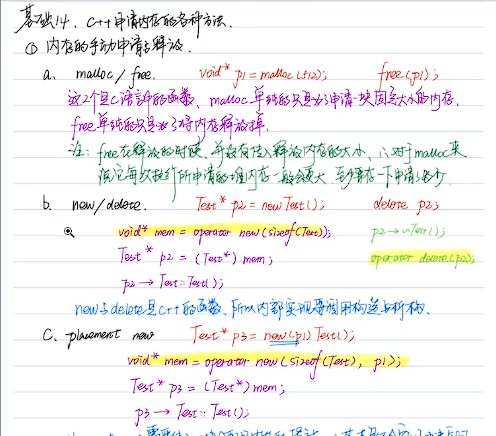 基础14. C++申请内存的各种方法.
① 内存的手动申请与释放.
a. malloc / free. void* p1 = malloc(512); free(p1);
这2个是C语言中的函数、malloc单纯的只是为了申请一块固定大小的内存.
free单纯的只是为了将内存释放掉.
注: free在释放的时候、并没有传入释放内存的大小、∴对于malloc来
说它每次 所申请的 内存一般会更大 存一下申请了多少
b. new/delete. Test* p2 = new Test(); delete p2;
void* mem = operator new(sizeof(Test)); p2→~Test();
Test* p2 = (Test*) mem; operator delete(p2);
p2→Test::Test();
new与delete是C++的函数、所以内部实现要调用构造与析构、
C. placement new Test* p3 = new(p1) Test();
void* mem = operator new(sizeof(Test), p1);
Test* p3 = (Test*)mem;
p3→Test::Test();